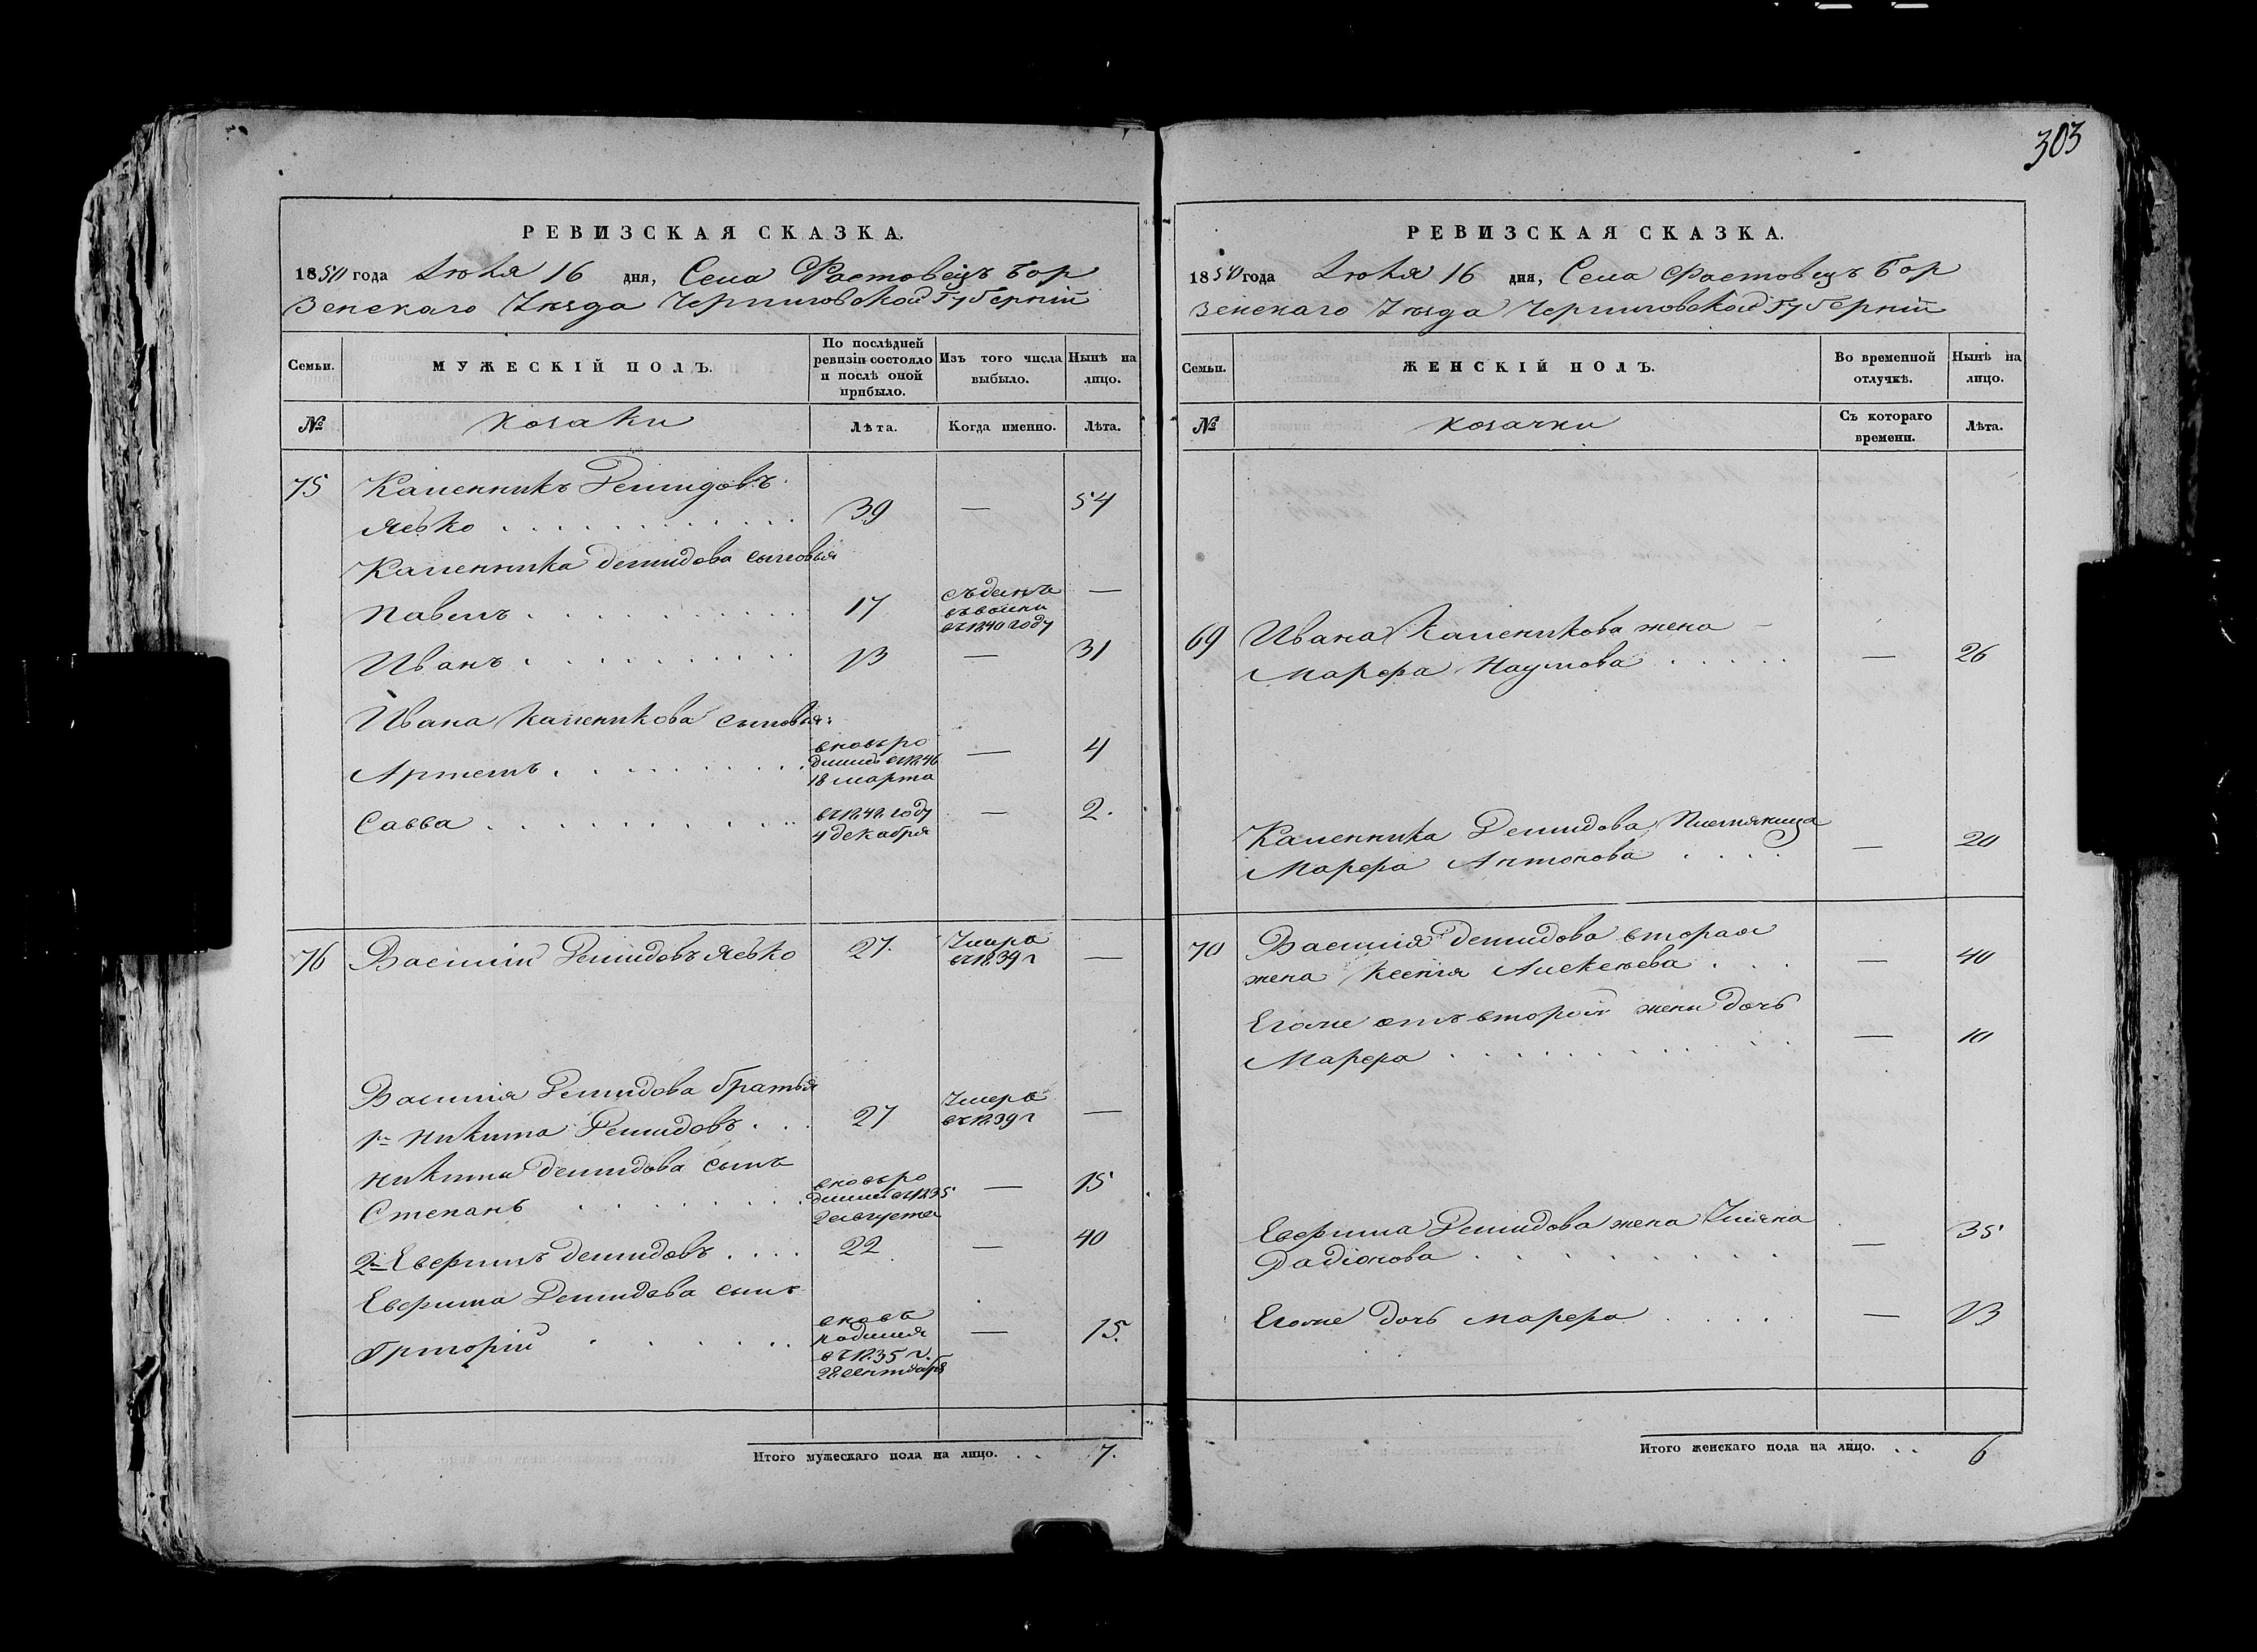 303
РЕВИЗСКАЯ СКАЗКА.
1850 года Іюля 16 дня, Села Фастовецъ Бор
зенскаго Уѣзда Черниговской Губерніи
Семьи.
МУЖЕСКІЙ ПОЛЪ.
По послѣдней
ревизіи состояло
и послѣ оной
прибыло.
Изъ того числа
выбыло.
Нынѣ на
лицо.
№
козаки
Лѣта.
Когда именно.
Лѣта.
75 Каленникъ Демидовъ
Ясько 39 — 54
Каленника Демидова сыновья
Павелъ 17 —
въ 1840 году
Иванъ 13 — 31
Ивана Каленикова сыновья:
Артемъ — 4
вновь ро
18 марта
Савва — 2.
4 декабря
76 Василій Демидовъ Ясько 27. Умеръ
въ 1839 г —
Василія Демидова братья
1й Никита Демидовъ 27 Умеръ
въ 1839 г —
Никиты Демидова сынъ
Степанъ вновь ро — 15
2 августа
2й Евфимъ Демидовъ 22 — 40
Евфима Демидова сынъ
Григорій вновь
родился
въ 1835 г.
28 сентября — 15.
Итого мужескаго пола на лицо. . . 7.
РЕВИЗСКАЯ СКАЗКА.
1850 года Іюля 16 дня, Села Фастовецъ Бор
зенскаго Уѣзда Черниговской Губерніи
Семьи.
ЖЕНСКІЙ ПОЛЪ.
Во временной
отлучкѣ.
Нынѣ на
лицо.
№
козачки
Съ котораго
времени.
Лѣта.
69 Ивана Каленикова жена
Марфа Наумова — 26
Каленника Демидова племяница
Марфа Антонова — 20
70 Василія Демидова вторая
жена Ксенія Алексѣева — 40
Егоже отъ второй жены дочь
Марфа — 10
Евфима Демидова жена Уліяна
Радіонова — 35
Егоже дочь Марфа — 13
Итого женскаго пола на лицо. . . 6